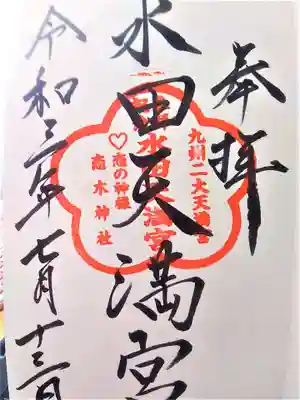 奉拝
水田天満宮
令和三年七月十三日
九州二大天満宮
水田天満宮
♡恋の神様
恋木神社